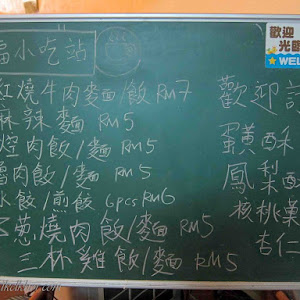 小吃站
紅燒牛肉麵/飯RM7
麻辣麵 RM5
焢肉飯/麵 RM5
肉飯/麵 RM5
水餃/煎餃 6pcs RM6
蔥燒肉飯/麵 RM5
三杯雞飯/麵 RM5
歡迎
蘋酥
鳳梨酥
核桃
杏仁
歡迎
光臨
WEL